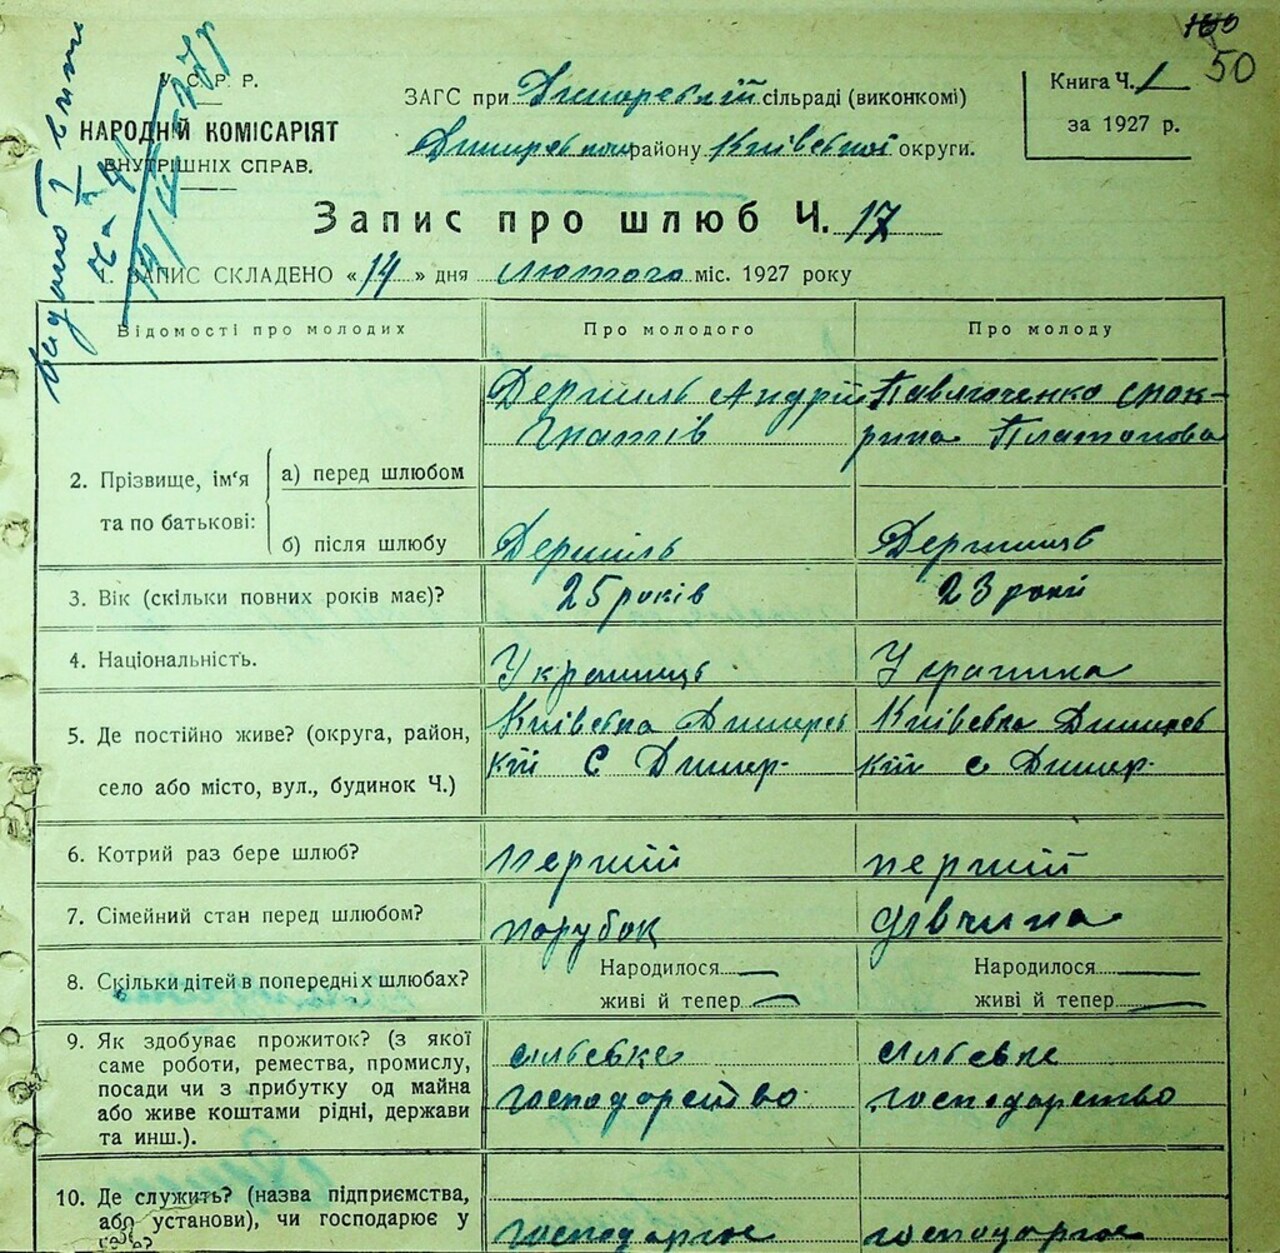 50
У. С. Р. Р.
НАРОДНІЙ КОМІСАРІЯТ
ВНУТРІШНІХ СПРАВ.
ЗАГС при Димерській сільраді (виконкомі)
району Київської округи.
Книга Ч. 1
за 1927 р.
Запис про шлюб Ч. 17
1. ЗАПИС СКЛАДЕНО «14» дня лютого міс. 1927 року
Відомості про молодих
Про молодого
Про молоду
2. Прізвище, ім'я
та по батькові:
а) перед шлюбом
Андрій
Гнатів
Павлюченко Мок-
рина Платонова
б) після шлюбу
3. Вік (скільки повних років має)?
25 років
23 роки
4. Національність.
Українець
Українка
5. Де постійно живе? (округа, район,
село або місто, вул., будинок Ч.)
Київська Димерсь
кий с Димер
Київська Димерсь
кий с Димер
6. Котрий раз бере шлюб?
перший
перший
7. Сімейний стан перед шлюбом?
парубок
дівчина
8. Скільки дітей в попередніх шлюбах?
Народилося —
живі й тепер —
Народилося —
живі й тепер —
9. Як здобуває прожиток? (з якої
саме роботи, ремества, промислу,
посади чи з прибутку од майна
або живе коштами рідні, держави
та инш.).
сільське
господарство
сільське
господарство
10. Де служить? (назва підприємства,
або установи), чи господарює у
господарює
господарює